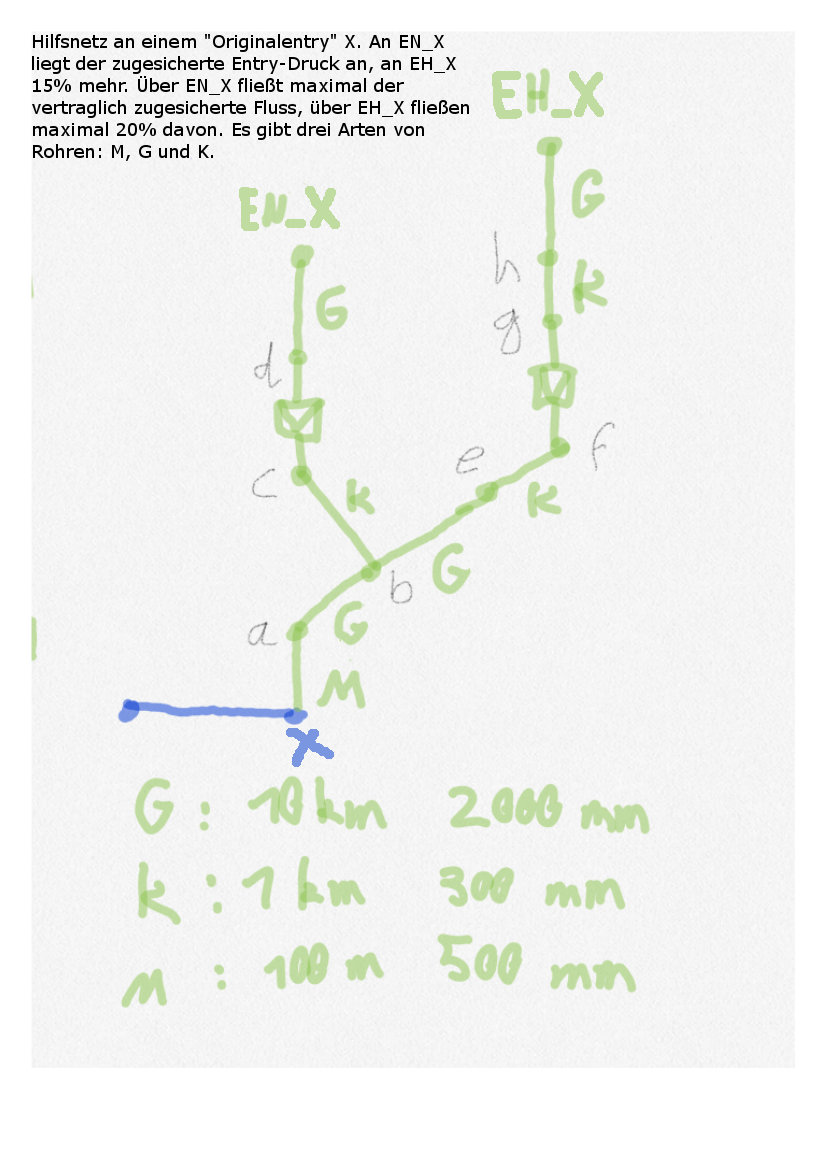 Hilfsnetz an einem "Originalentry" X. An EN_X
liegt der zugesicherte Entry-Druck an, an EH_X
15% mehr. Über EN_X fließt maximal der
vertraglich zugesicherte Fluss, über EH_X fließen
maximal 20% davon. Es gibt drei Arten von
Rohren: M, G und K.
EH_X
EN_X
G
h
K
G
g
d
e
f
c
K
K
G
b
a
G
M
X
G: 10 km 2000 mm
K: 1 km 300 mm
M: 100 m 500 mm